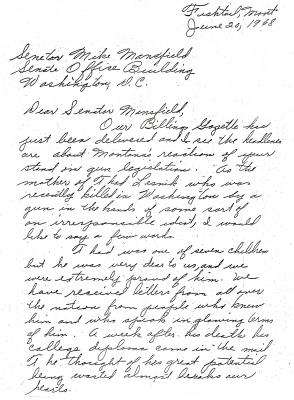 Fishtail, Mont
June 20, 1968
Senator Mike Mansfield
Senate Office Building
Washington, D.C.
Dear Senator Mansfield,
Our Billings Gazette has
just been delivered and I see the headlines
are about Montana's reaction of your
stand on gun legislation. As the
mother of Thad Lesnik who was
recently killed in Washington by a
gun in the hands of some sorry
irresponsible idiot, I would
like to say a few words.
Thad was one of seven children
but he was very dear to us, and we
were extremely proud of him. We
have received letters from all over
the nation from people who knew
him and who speak in glowing terms
of him. A week after his death his
college diploma came in the mail
The thought of his great potential
being wasted almost breaks our
hearts.